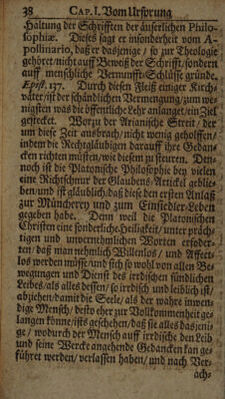 38 CAP. I. Vom Ursprung
Haltung der Schrifften der äuserlichen Philo-
sophiæ. Dieses sagt er insonderheit vom A-
pollinario, daß er dasjenige / so zur Theologie
gehöret/nicht auff Beweiß der Schrifft/sondern
auff menschliche Vernunfft-Schlüsse gründe.
Epist. 137. Durch diesen Fleiß einiger Kirch-
väter/ist der schändlichen Vermengung/zum we-
nigsten was die öffentliche Lehr anlanget/ein Ziel
gestecket. Worzu der Arianische Streit / der
um diese Zeit ausbrach/nicht wenig geholffen/
indem die Rechtgläubigen darauff ihre Gedan-
cken richten müsten/wie diesem zu steuren. Den-
noch ist die Platonische Philosophie bey vielen
eine Richtschnur der Glaubens-Articul geblie-
ben/und ist gläublich/daß diese den ersten Anlaß
zur Müncherey und zum Einsiedler-Leben
gegeben habe. Denn weil die Platonischen
Christen eine sonderliche Heiligkeit/ unter präch-
tigen und unvernehmlichen Worten erfoder-
ten/ daß man nehmlich Willenlos/ und Affect-
los werden müsse/und sich so wohl von allen Be-
wegungen und Dienst des irrdischen sündlichen
Leibes/als alles dessen/so irrdisch und leiblich ist/
abziehen/damit die Seele/ als der wahre inwen-
dige Mensch/ desto eher zur Vollkommenheit ge-
langen könne/ists geschehen/daß sie alles dasjeni-
ge/ wodurch der Mensch auff irrdische den Leib
und seine Wercke angehende Gedancken kan ge-
führet werden/ verlassen haben/und nach Ver-
ach-